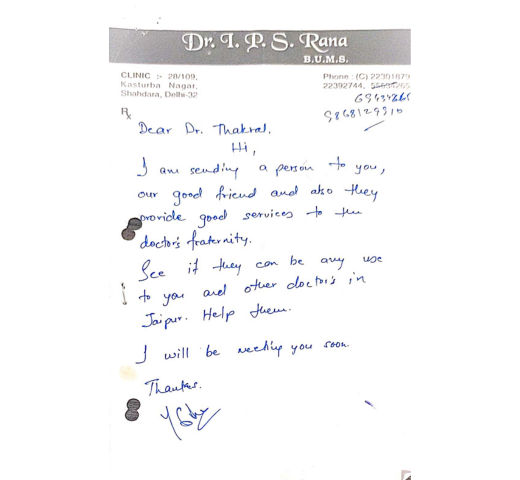 Dr. I. P. S. Rana
B.U.M.S.
CLINIC :- 28/109,
Kasturba Nagar,
Shahdara, Delhi-32
Phone : (C) 22301879
22392744,
9868129510
Rx
Dear Dr. Thakral.
Hi,
I am sending a person to you,
our good friend and also they
provide good services to the
doctor's fraternity.
See if they can be any use
to you and other doctor's in
Jaipur. Help them.
I will be meeting you soon.
Thanks.